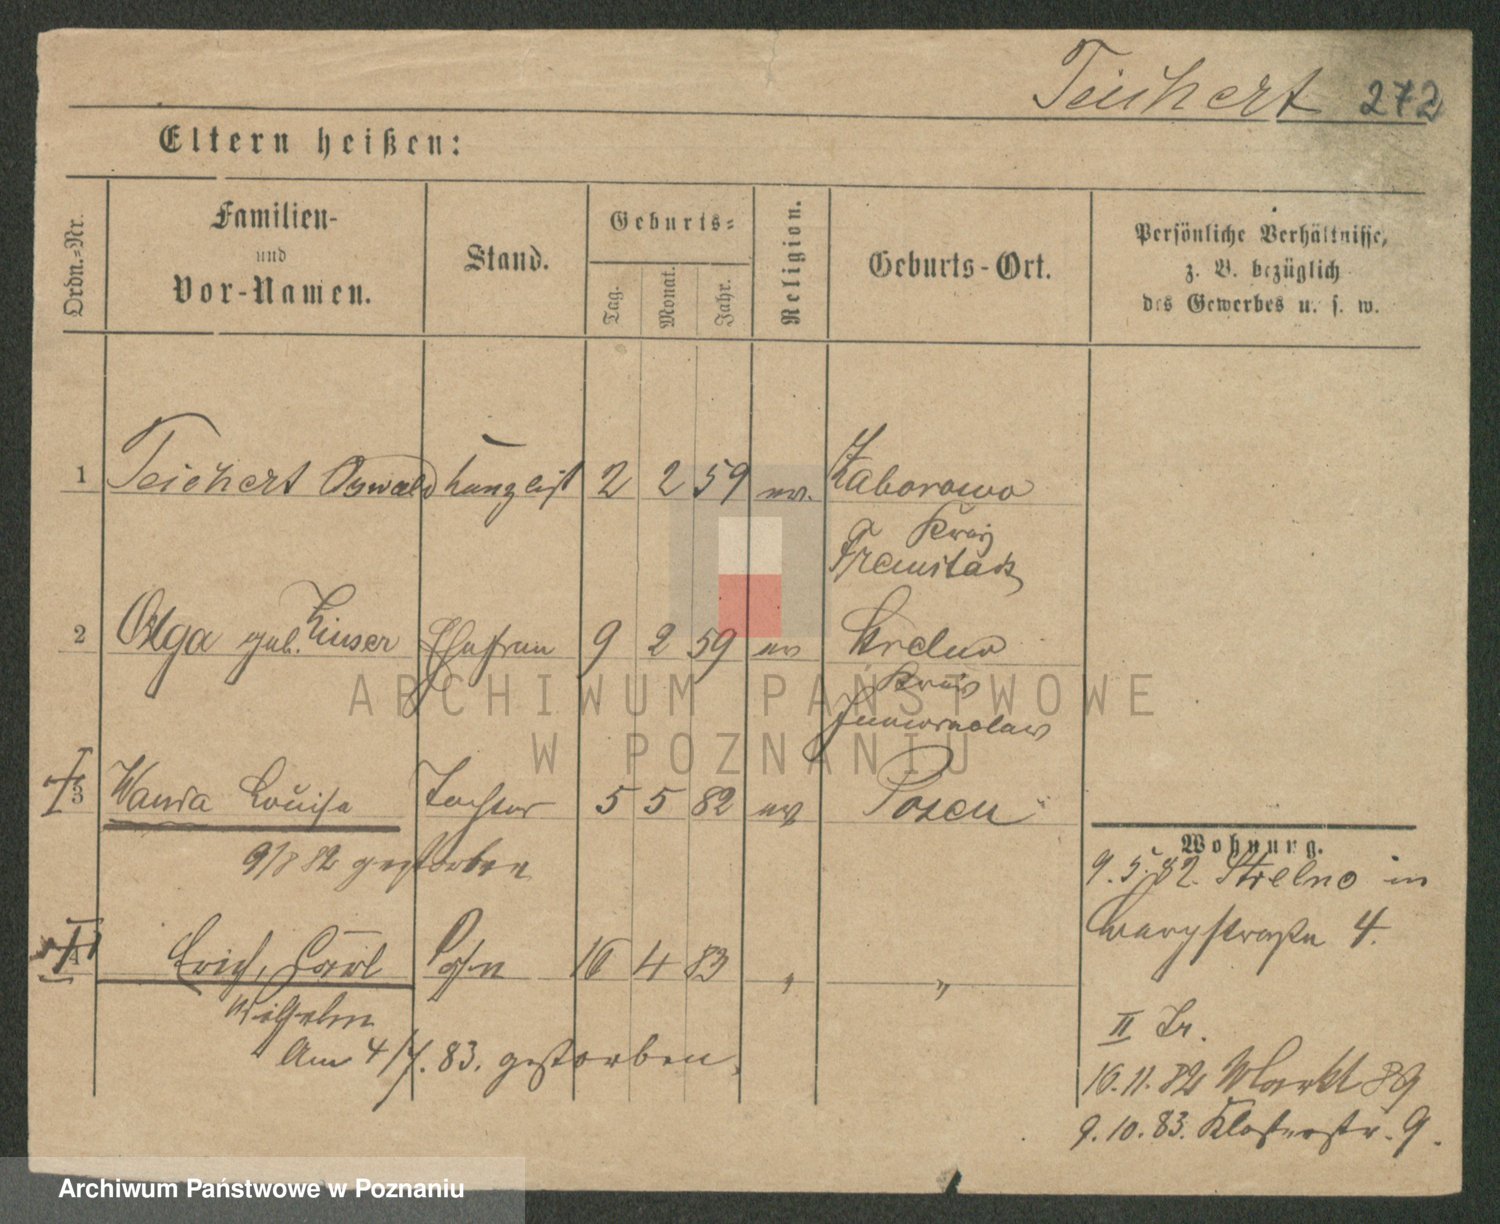 Teichert 272
Eltern heißen:
Ordn.-Nr.
Familien-
und
Vor-Namen.
Stand.
Geburts-
Tag.
Monat.
Jahr.
Religion.
Geburts-Ort.
Persönliche Verhältnisse,
z. B. bezüglich
des Gewerbes u. s. w.
1 Teichert Oswald Kanzlist 2 2 59 ev. Zaborowo
Kreis
Fraustadt
2 Olga geb. Ehefrau 9 2 59 ev Strelno
Kreis
Inowraclaw
3 Wanda Louise Tochter 5 5 82 ev Posen
9/8 82 gestorben
4 Erich, Carl Sohn 16 4 83 „ „
Wilhelm
Am 4/7. 83. gestorben.
Wohnung.
9. 5. 82. Strelno in
4.
II Tr.
10. 11. 82 Markt 89
9. 10. 83. Klosterstr. 9.
ARCHIWUM PAŃSTWOWE
W POZNANIU
Archiwum Państwowe w Poznaniu